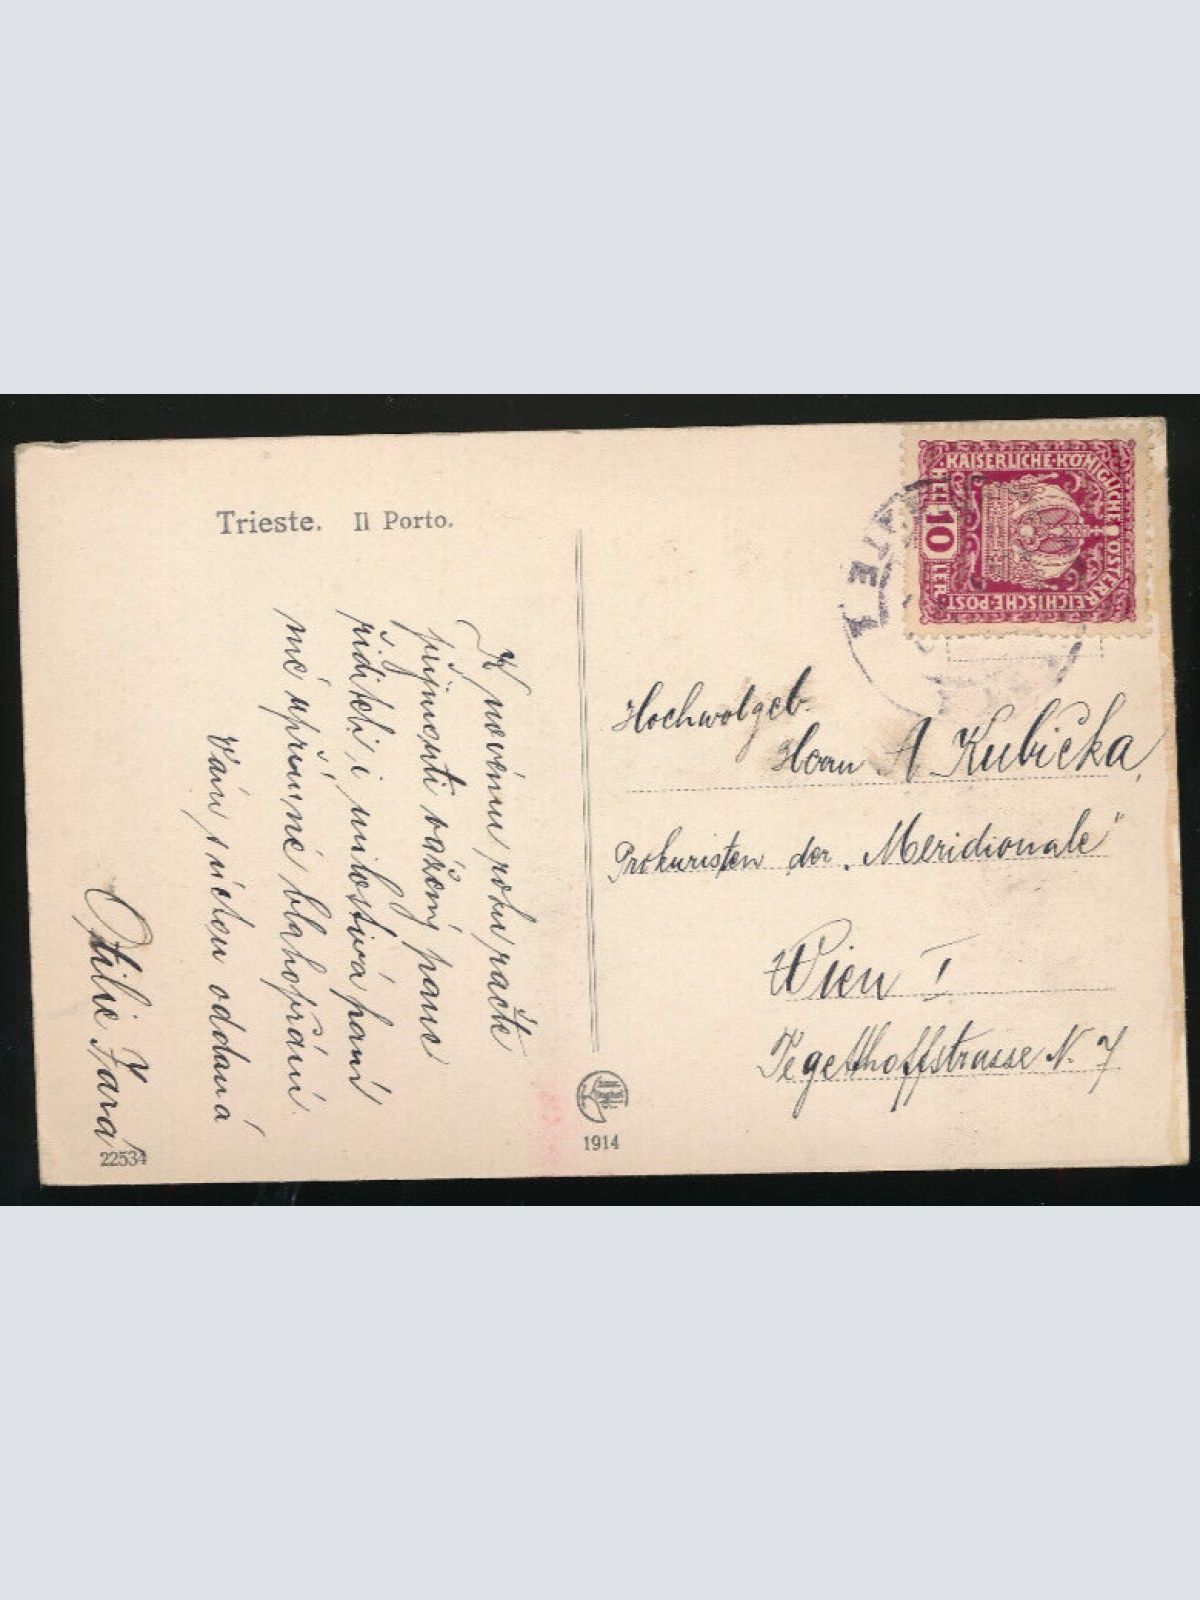 Trieste. Il Porto.
K novému roku račte
přijmouti vážený pane
řediteli i milostivá paní
mé upřímné blahopřání
Vám s úctou oddaná
Otilie Jará
22534
1914
KAISERLICHE·KÖNIGLICHE ÖSTERREICHISCHE·POST
HEL 10 LER
Hochwolgeb.
Herrn A Kubička,
Prokuristen der „Meridionale"
Wien I
Tegetthoffstrasse N. 7